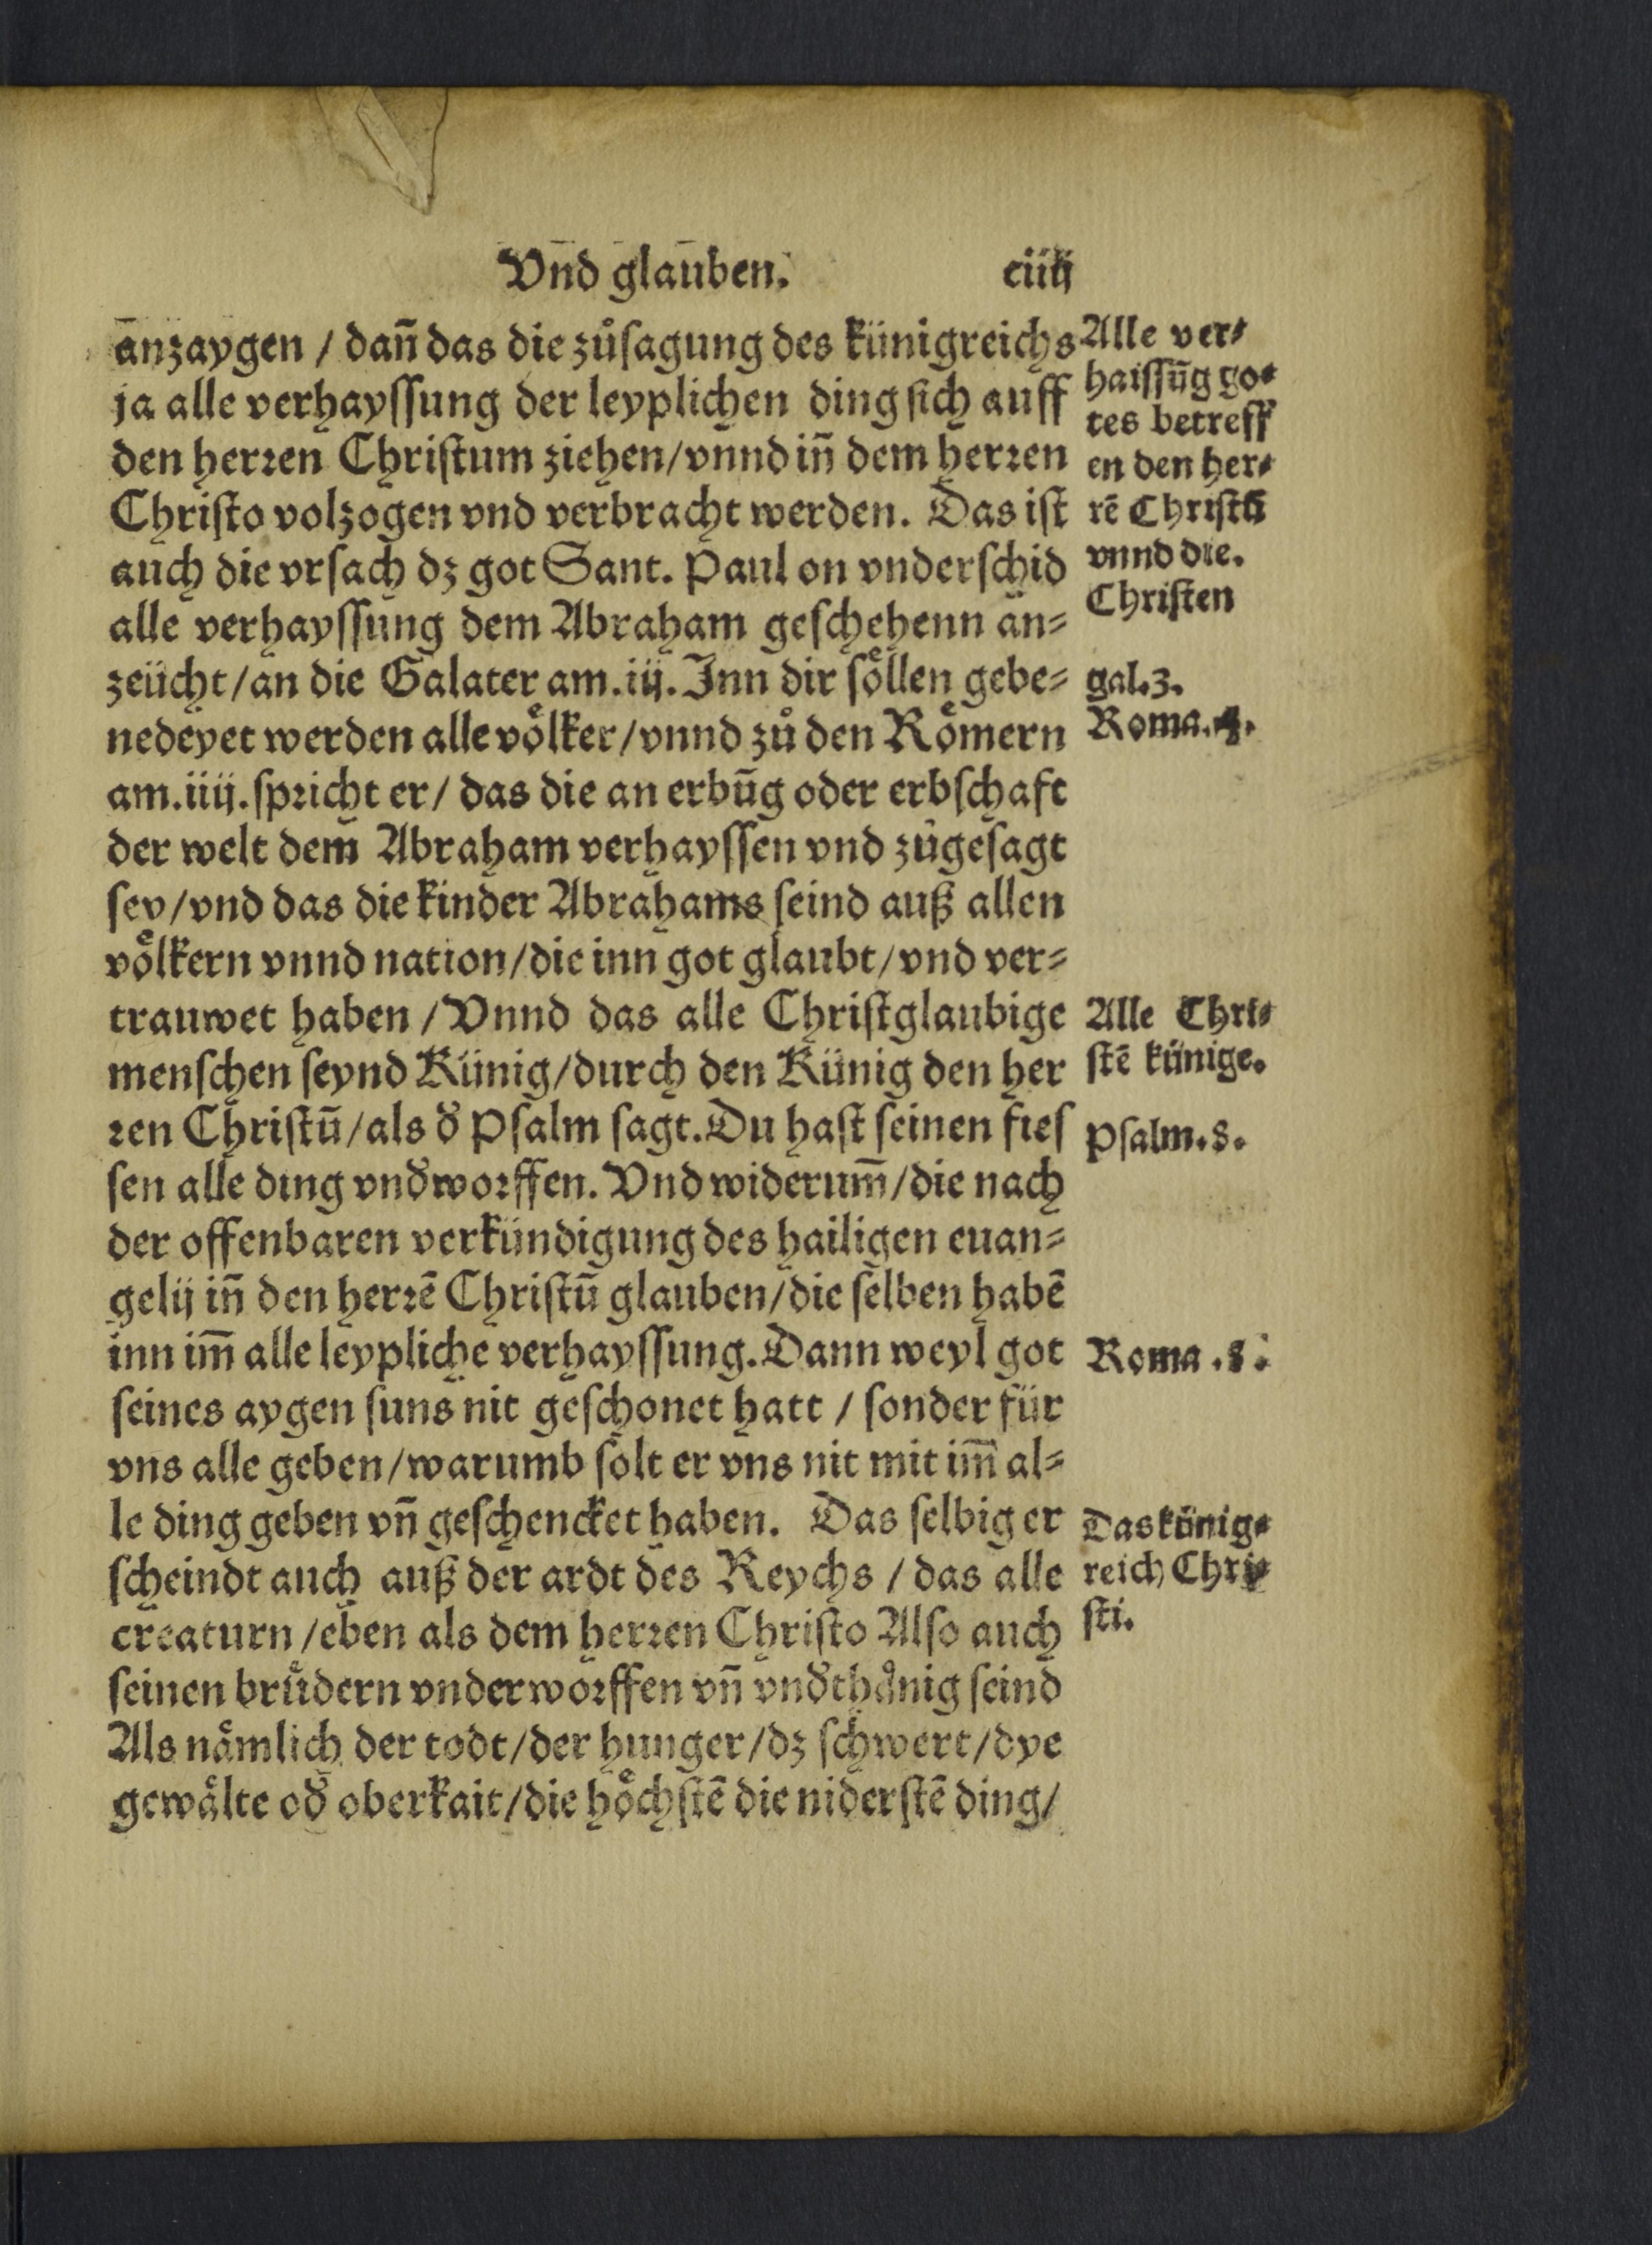 Vnd glauben. ciiij
anzaygen / dañ das die zůſagung des künigreichs
ja alle verhayſſung der leyplichen ding ſich auff
den herꝛen Chriſtum ziehen/vnnd iñ dem herꝛen
Chriſto volzogen vnd verbracht werden. Das iſt
auch die vrſach dz got Sant. Paul on vnderſchid
alle verhayſſung dem Abraham geſchehenn an⸗
zeücht/an die Galater am.iij. Inn dir ſoͤllen gebe⸗
nedeyet werden alle voͤlker/vnnd zů den Roͤmern
am.iiij. ſpꝛicht er/ das die an erbūg oder erbſchaft
der welt dem Abraham verhayſſen vnd zůgeſagt
ſey/vnd das die kinder Abrahams ſeind auß allen
voͤlkern vnnd nation/die inn got glaubt/vnd ver⸗
trauwet haben /Vnnd das alle Chriſtglaubige
menſchen ſeynd Künig/durch den Künig den her
ꝛen Chriſtū/als ď Pſalm ſagt. Du haſt ſeinen fieſ
ſen alle ding vnďwoꝛffen. Vnd widerum̄/die nach
der offenbaren verkündigung des hailigen euan⸗
gelij iñ den herꝛē Chriſtū glauben/die ſelben habē
inn im̄ alle leypliche verhayſſung. Dann weyl got
ſeines aygen ſuns nit geſchonet hatt / ſonder für
vns alle geben/warumb ſolt er vns nit mit im̄ al⸗
le ding geben vñ geſchencket haben. Das ſelbig er
ſcheindt auch auß der ardt des Reychs / das alle
creaturn /eben als dem herꝛen Chriſto Alſo auch
ſeinen bruͤdern vnderwoꝛffen vñ vnďthaͤnig ſeind
Als naͤmlich der todt/der hunger/dz ſchwert/dye
gewaͤlte oď oberkait/die hoͤchſtē die niderſtē ding/
Alle ver⸗
haiſſūg go⸗
tes betreff
en den her⸗
rē Chriſtū
vnnd die.
Chriſten
gal.3.
Roma.4.
Alle Chri⸗
ſtē künige.
Pſalm.8.
Roma.8.
Das künig⸗
reich Chri⸗
ſti.